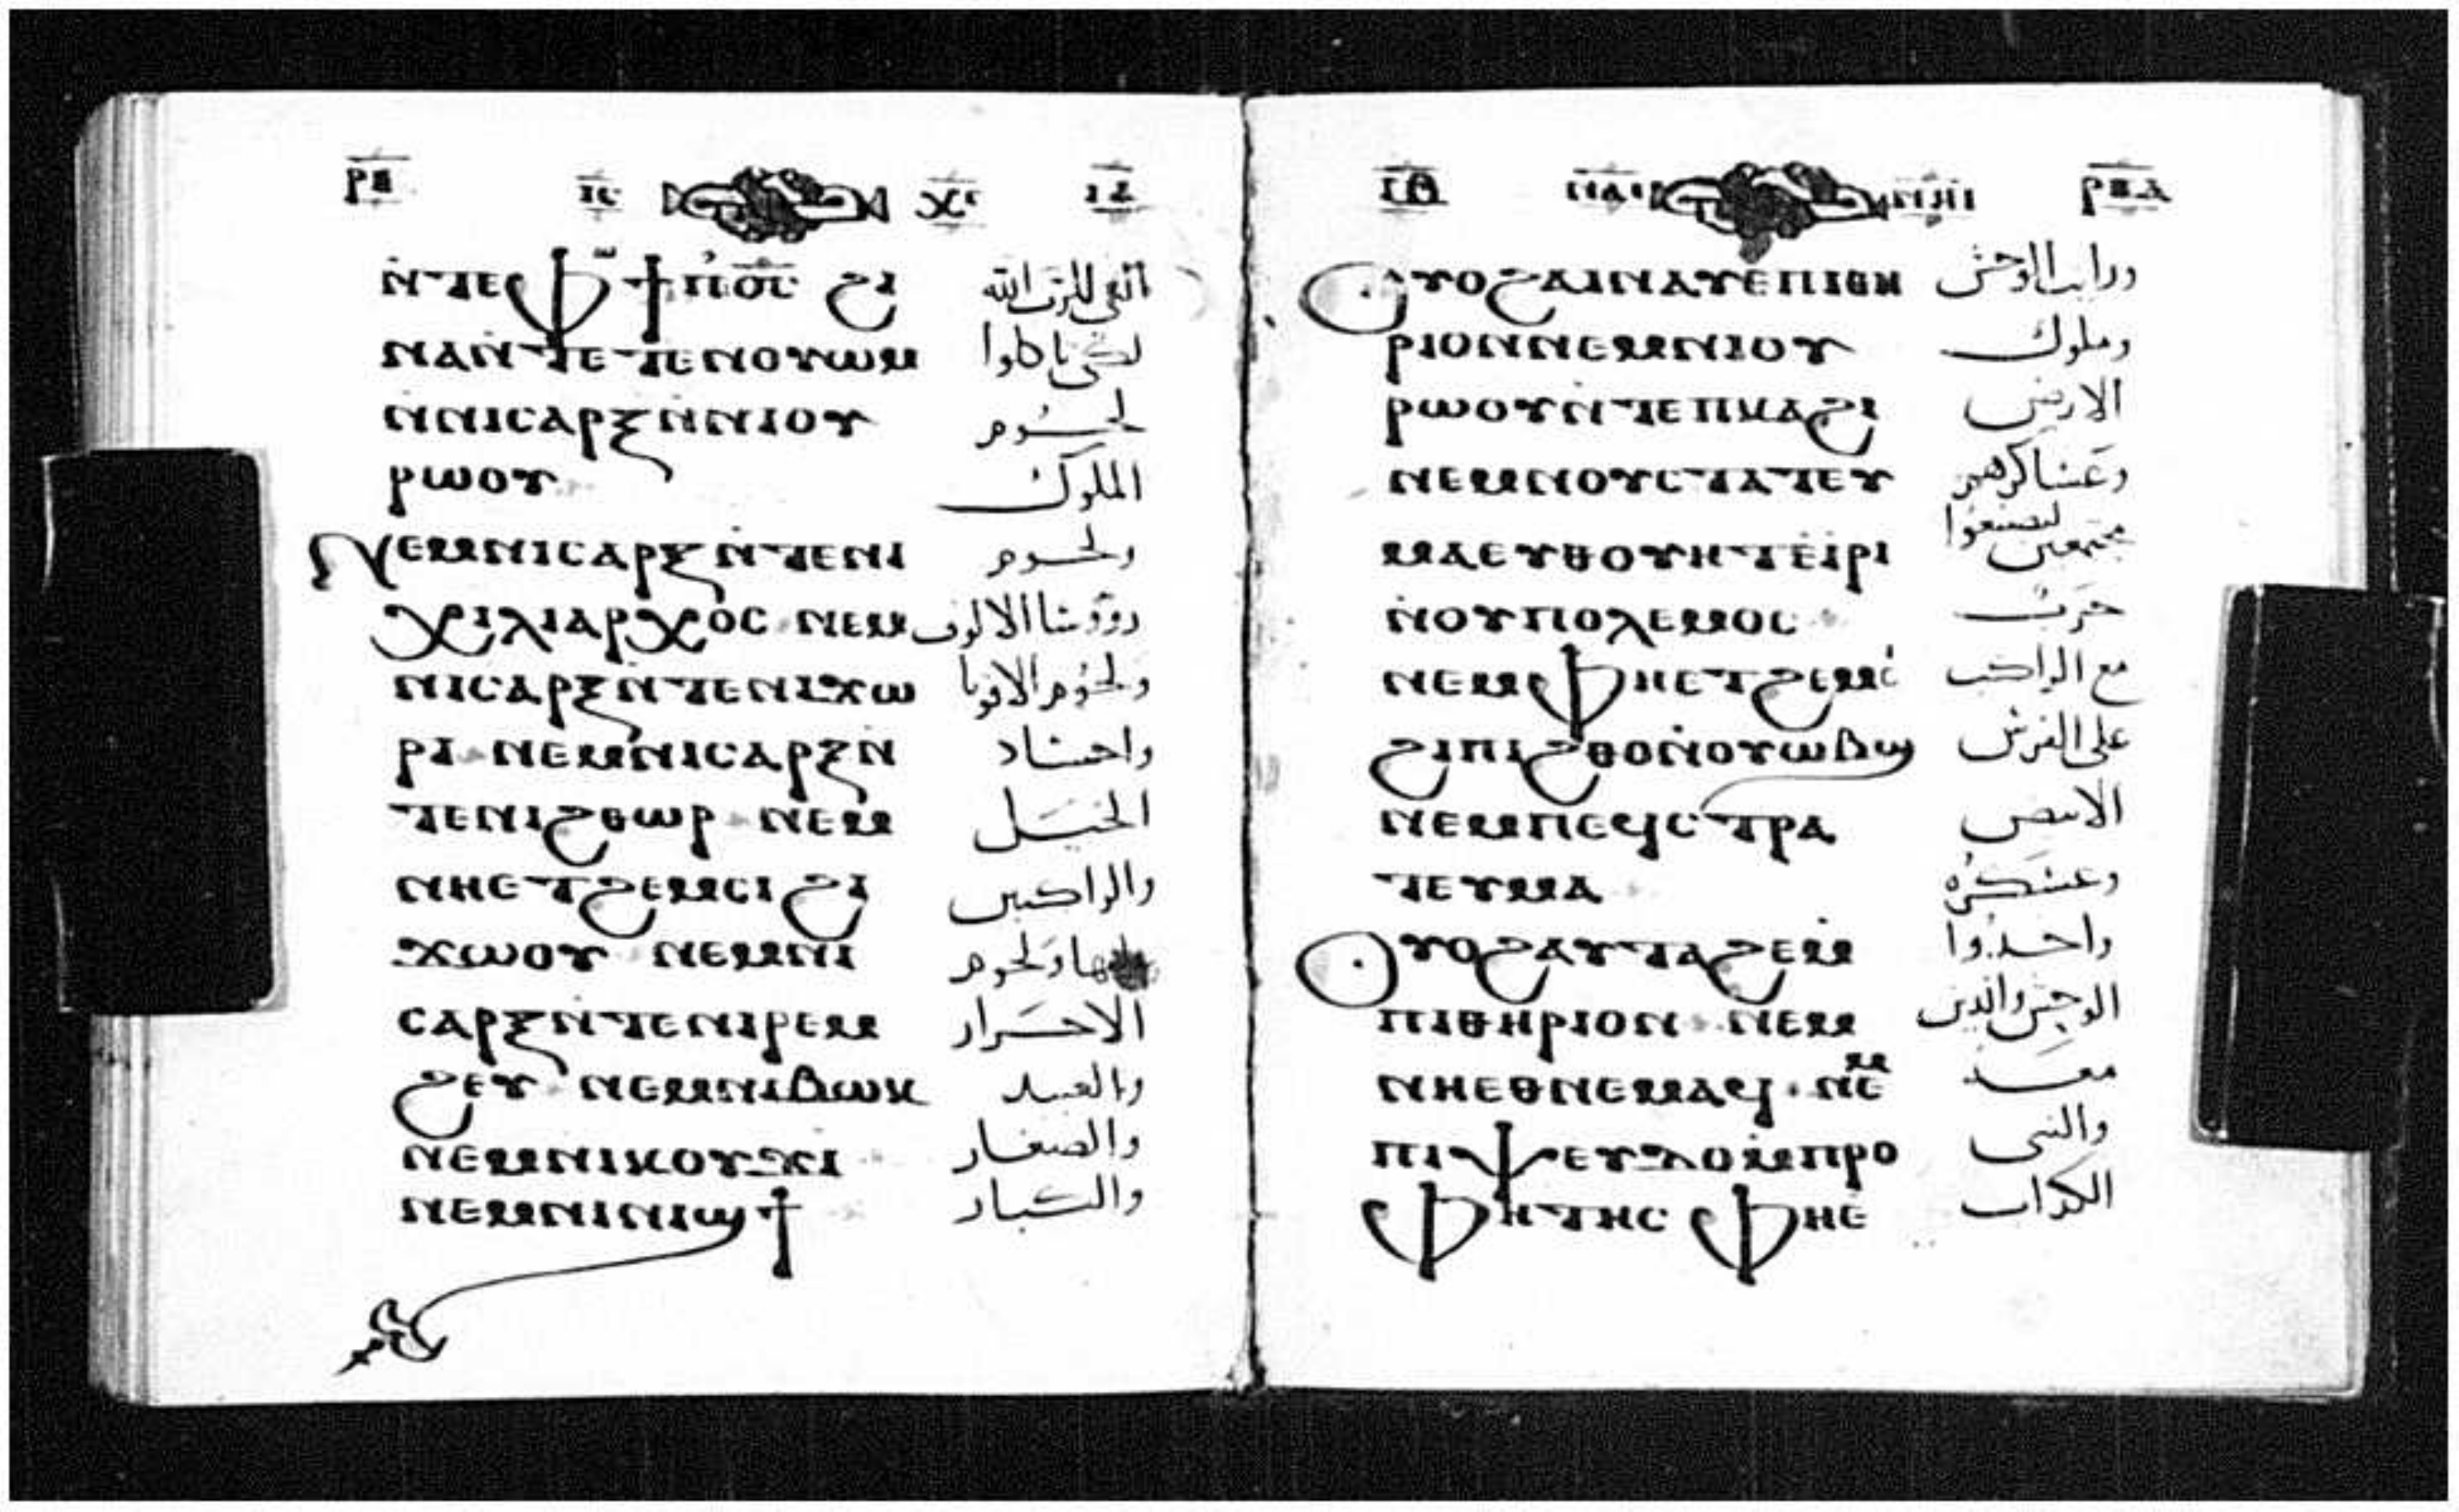 ⲣⲝ ⲓⲥ ⲭⲥ
ⲛ̀ⲧⲉⲫϯ ⲡ̀ⲟ̅ⲥ̅ ϩⲓ
ⲛⲁⲛ̀ⲧⲉⲧⲉⲛⲟⲩⲱⲙ لكي تاكلوا
ⲛ̀ⲛⲓⲥⲁⲣⲝⲛ̀ⲛⲓⲟⲩ لحوم
ⲣⲱⲟⲩ الملوك
ⲛⲉⲙⲛⲓⲥⲁⲣⲝⲛ̀ⲧⲉⲛⲓ ولحوم
ⲭⲓⲗⲓⲁⲣⲭⲟⲥ ⲛⲉⲙ روؤسا الالوف
ⲛⲓⲥⲁⲣⲝⲛ̀ⲧⲉⲛⲓϫⲱ ولحوم الاقويا
ⲣⲓ ⲛⲉⲙⲛⲓⲥⲁⲣⲝⲛ̀ واجساد
ⲧⲉⲛⲓϩⲑⲱⲣ ⲛⲉⲙ الخيل
ⲛⲏⲉⲧϩⲉⲙⲥⲓϩⲓ والراكبين
ϫⲱⲟⲩ ⲛⲉⲙⲛⲓ عليها ولحوم
ⲥⲁⲣⲝⲛ̀ⲧⲉⲛⲓⲣⲉⲙ الاحرار
ϩⲉⲩ ⲛⲉⲙⲛⲓⲃⲱⲕ والعبيد
ⲛⲉⲙⲛⲓⲕⲟⲩϫⲓ والصغار
ⲛⲉⲙⲛⲓⲛⲓϣϯ والكبار
ⲓⲑ ⲣⲝⲁ
ⲟⲩⲟϩⲁⲓⲛⲁⲩⲉⲡⲓⲑⲏ ورايت الوحش
ⲣⲓⲟⲛⲛⲉⲙⲛⲓⲟⲩ وملوك
ⲣⲱⲟⲩⲛ̀ⲧⲉⲡⲕⲁϩⲓ الارض
ⲛⲉⲙⲛⲟⲩⲥⲧⲣⲁⲧⲉⲩ وعساكرهم
ⲙⲁⲉⲩⲑⲟⲩⲏⲧⲉ̀ⲓⲣⲓ مجتمعين ليصنعوا
ⲛ̀ⲟⲩⲡⲟⲗⲉⲙⲟⲥ حرب
ⲛⲉⲙⲫⲏⲉⲧϩⲉⲙⲥ̀ مع الراكب
ϩⲓⲡⲓϩⲑⲟⲛ̀ⲟⲩⲱⲃϣ على الفرس
ⲛⲉⲙⲡⲉϥⲥⲧⲣⲁ الابيض
ⲧⲉⲩⲙⲁ وعسكره
ⲟⲩⲟϩⲁⲩⲧⲁϩⲉⲙ̀ واخذوا
ⲡⲓⲑⲏⲣⲓⲟⲛ ⲛⲉⲙ الوحش والذين
ⲛⲏⲉⲑⲛⲉⲙⲁϥ ⲛⲉⲙ معه
ⲡⲓⲯⲉⲩⲇⲟⲙ̀ⲡⲣⲟ والنبى
ⲫⲏⲧⲏⲥ ⲫⲏⲉ̀ الكداب